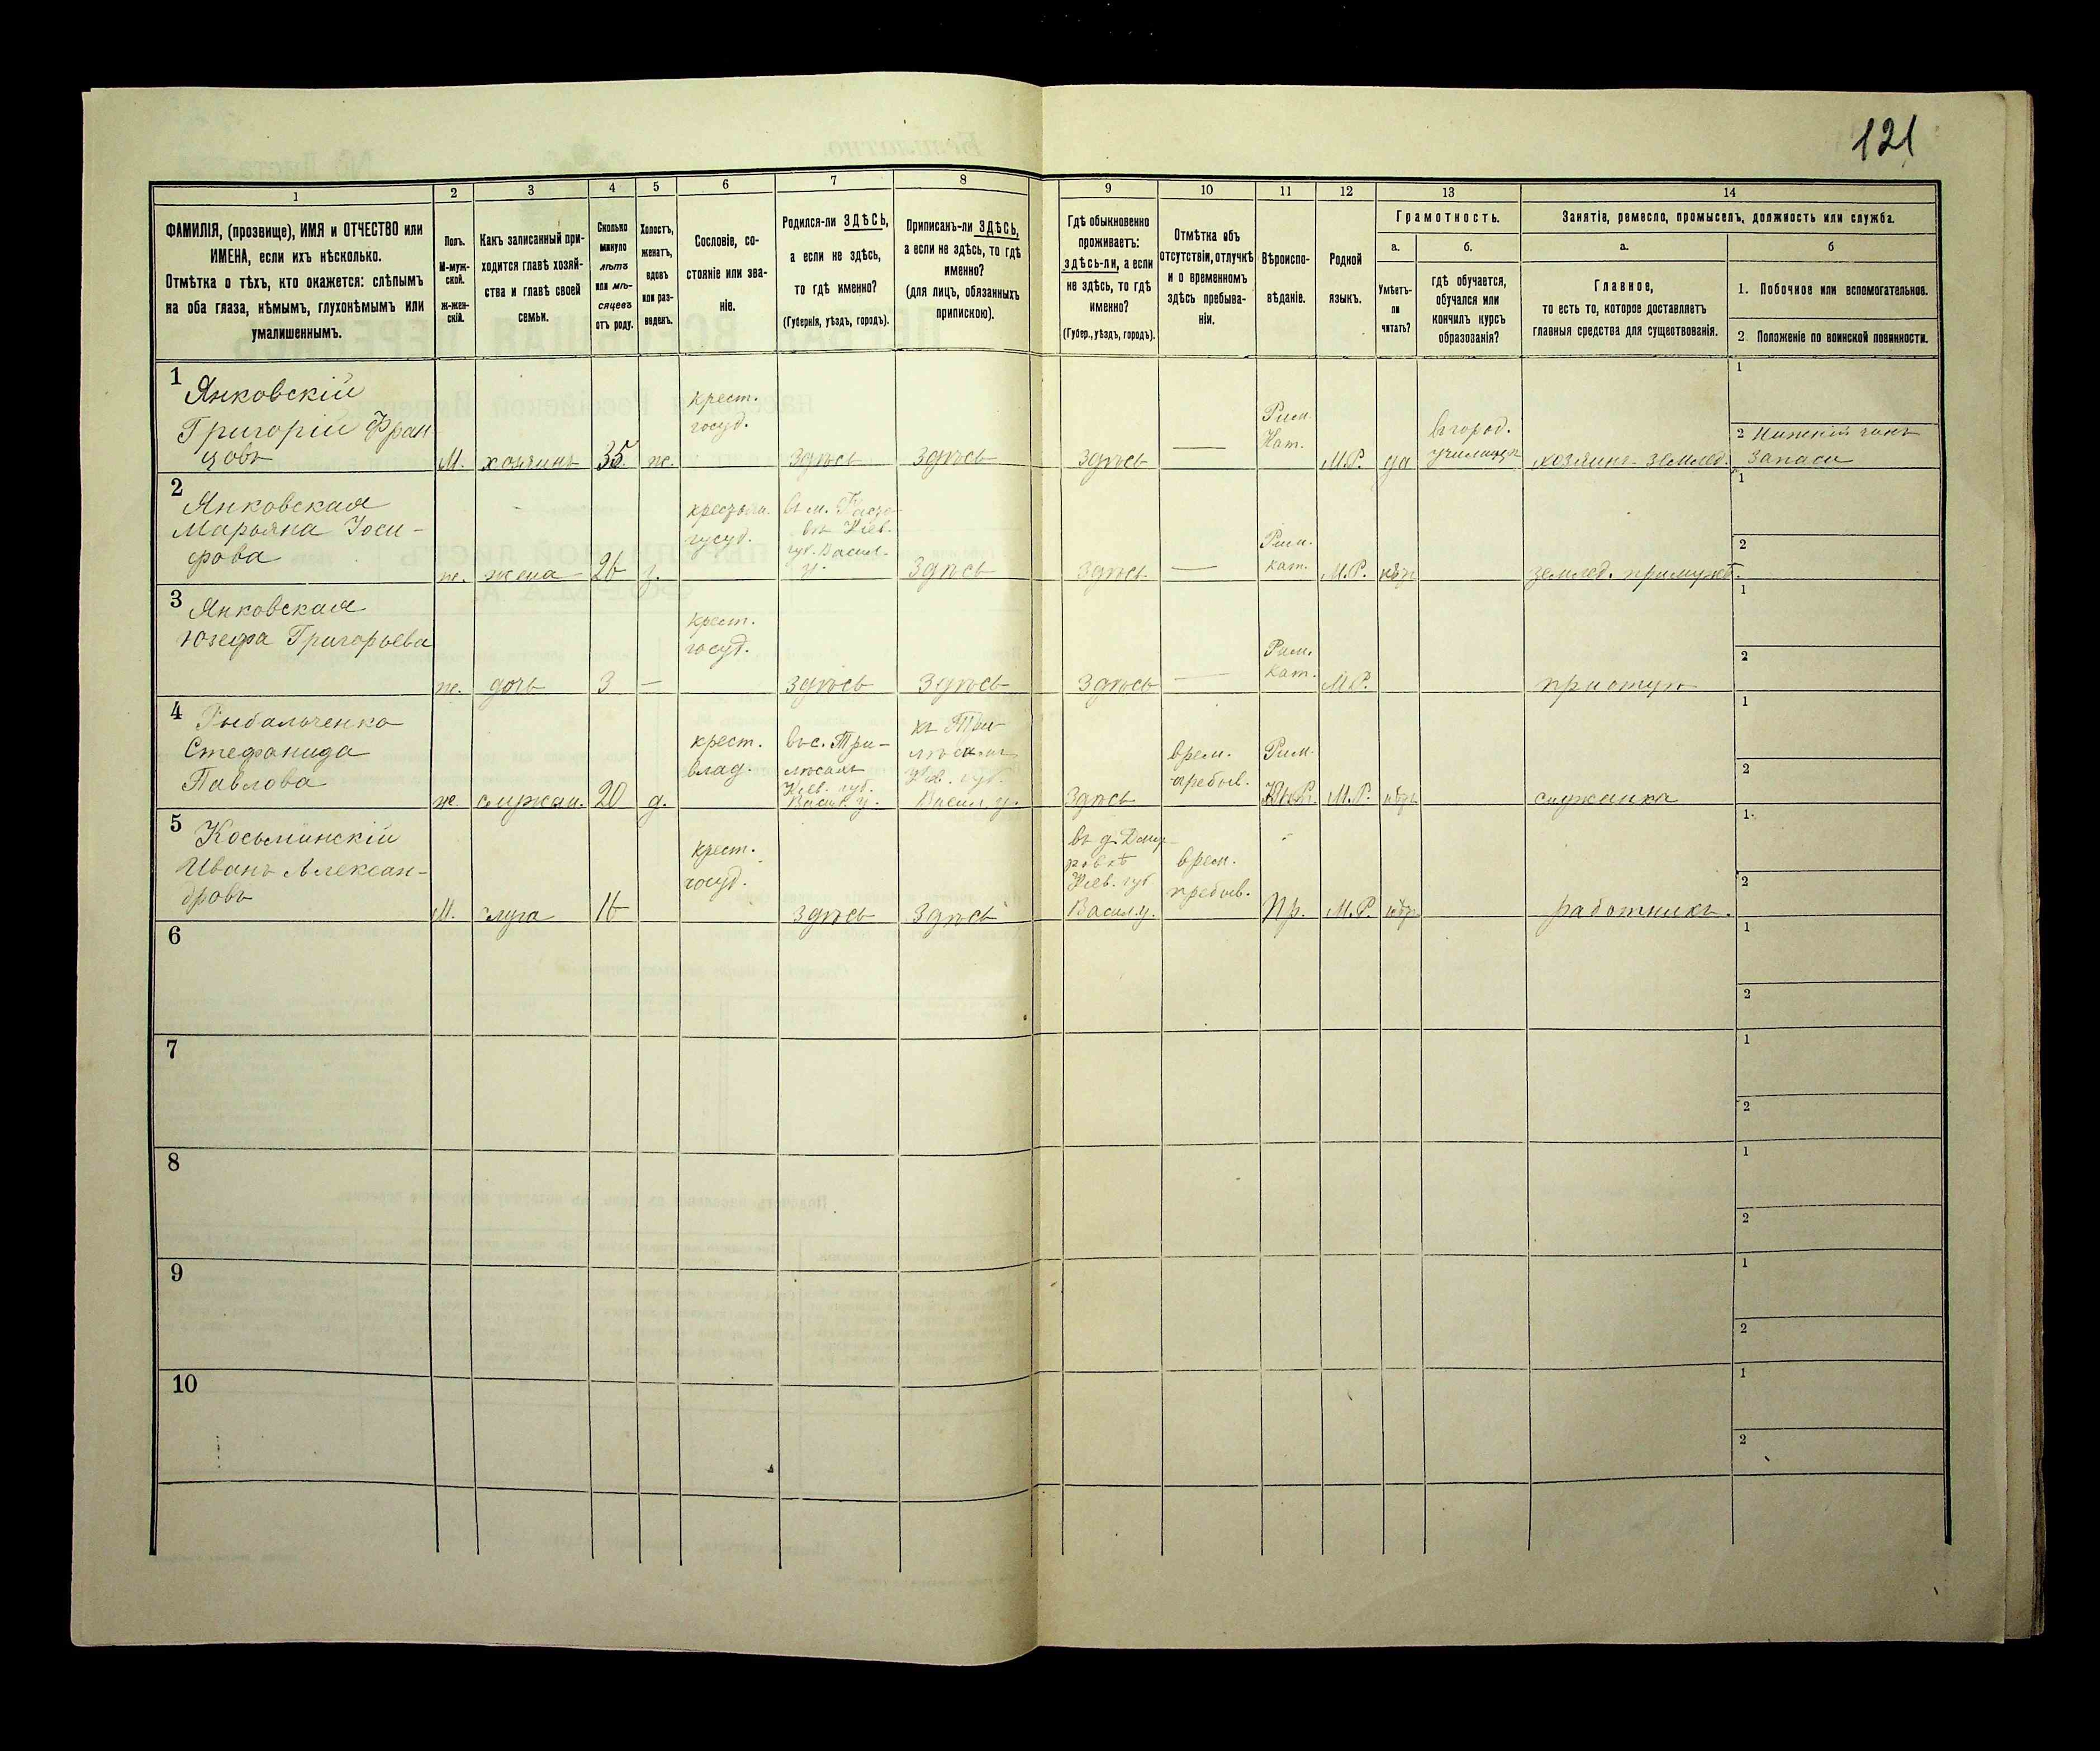 121
1
2
3
4
5
6
7
8
9
10
11
12
13
14
ФАМИЛІЯ, (прозвище), ИМЯ и ОТЧЕСТВО или
ИМЕНА, если ихъ нѣсколько.
Отмѣтка о тѣхъ, кто окажется: слѣпымъ
на оба глаза, нѣмымъ, глухонѣмымъ или
умалишеннымъ.
Полъ.
М-муж-
ской.
ж-жен-
скій.
Какъ записанный при-
ходится главѣ хозяй-
ства и главѣ своей
семьи.
Сколько
минуло
лѣтъ
или мѣ-
сяцевъ
отъ роду.
Холостъ,
женатъ,
вдовъ
или раз-
веденъ.
Сословіе, со-
стояніе или зва-
ніе.
Родился-ли ЗДѢСЬ,
а если не здѣсь,
то гдѣ именно?
(Губернія, уѣздъ, городъ).
Приписанъ-ли ЗДѢСЬ,
а если не здѣсь, то гдѣ
именно?
(для лицъ, обязанныхъ
припискою).
Гдѣ обыкновенно
проживаетъ:
здѣсь-ли, а если
не здѣсь, то гдѣ
именно?
(Губер., уѣздъ, городъ).
Отмѣтка объ
отсутствіи, отлучкѣ
и о временномъ
здѣсь пребыва-
ніи.
Вѣроиспо-
вѣданіе.
Родной
языкъ.
Грамотность.
а.
б.
Умѣетъ-
ли
читать?
гдѣ обучается,
обучался или
кончилъ курсъ
образованія?
Занятіе, ремесло, промыселъ, должность или служба.
а.
б
Главное,
то есть то, которое доставляетъ
главныя средства для существованія.
1. Побочное или вспомогательное.
2. Положеніе по воинской повинности.
1
Янковскій
Григорій Фран
цовъ
М. хозяинъ 35 ж.
крест.
госуд.
здѣсь здѣсь здѣсь —
Рим.
Кат.
М.Р. да
въ город.
училищѣ
хозяинъ землед.
1
2 Нижній чинъ
запаса
2
Янковская
Марьяна Іоси-
фова
ж. жена 26 з.
госуд.
въ м.
Кіев.
губ. Васил.
у.
здѣсь здѣсь —
Рим.
кат.
М.Р. нѣтъ
землед. при мужѣ.
1
2
3
Янковская
Юзефа Григорьева
ж. дочь 3 —
крест.
госуд.
здѣсь здѣсь здѣсь —
Рим.
кат.
М.Р.
1
2
4
Рыбальченко
Стефанида
Павлова
ж. служан. 20 д.
крест.
влад.
въ с. Три-
лѣсахъ
Кіев. губ.
Васил. у.
Кіев. губ.
Васил. у.
здѣсь
врем.
пребыв.
Рим.
М.Р. нѣтъ
служанка
1
2
5
Косьминскій
Иванъ Алексан-
дровъ
М. слуга 16
крест.
госуд.
здѣсь здѣсь
Кіев. губ
Васил. у.
врем.
пребыв.
Пр. М.Р. нѣтъ
работникъ.
1
2
6
1
2
7
1
2
8
1
2
9
1
2
10
1
2